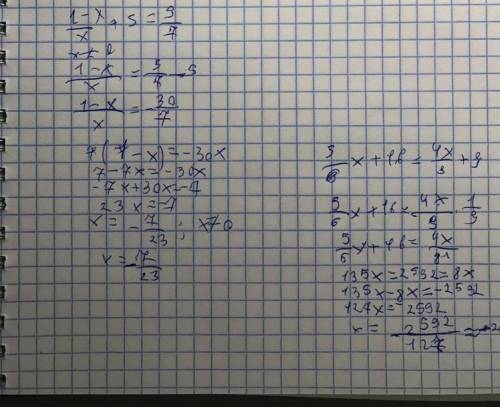 1-x/x + 5 = 5/7
x≠0
1-x/x = 5/7 - 5
1-x/x = -30/7
7(1-x)=-30x
7-7x=-30x
-7x+30x=-7
23x=-7
x = -7/23 ; x≠0
x = -7/23
5/6 x + 16 = 4x/9 : 9
5/6 x + 16 = 4x/9 · 1/9
5/6 x + 16 = 4x/81
135x=2592=8x
135x-8x=-2592
127x=-2592
x = -2592/127 ≈